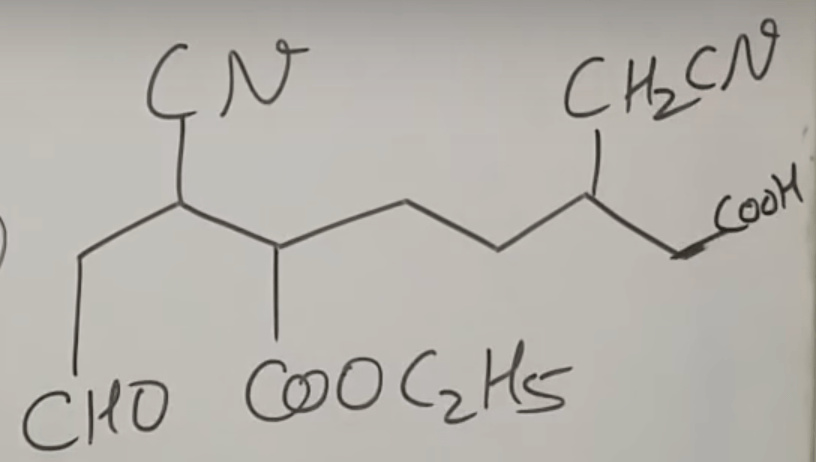 CN
CH₂CN
COOH
CHO
COOC₂H₅